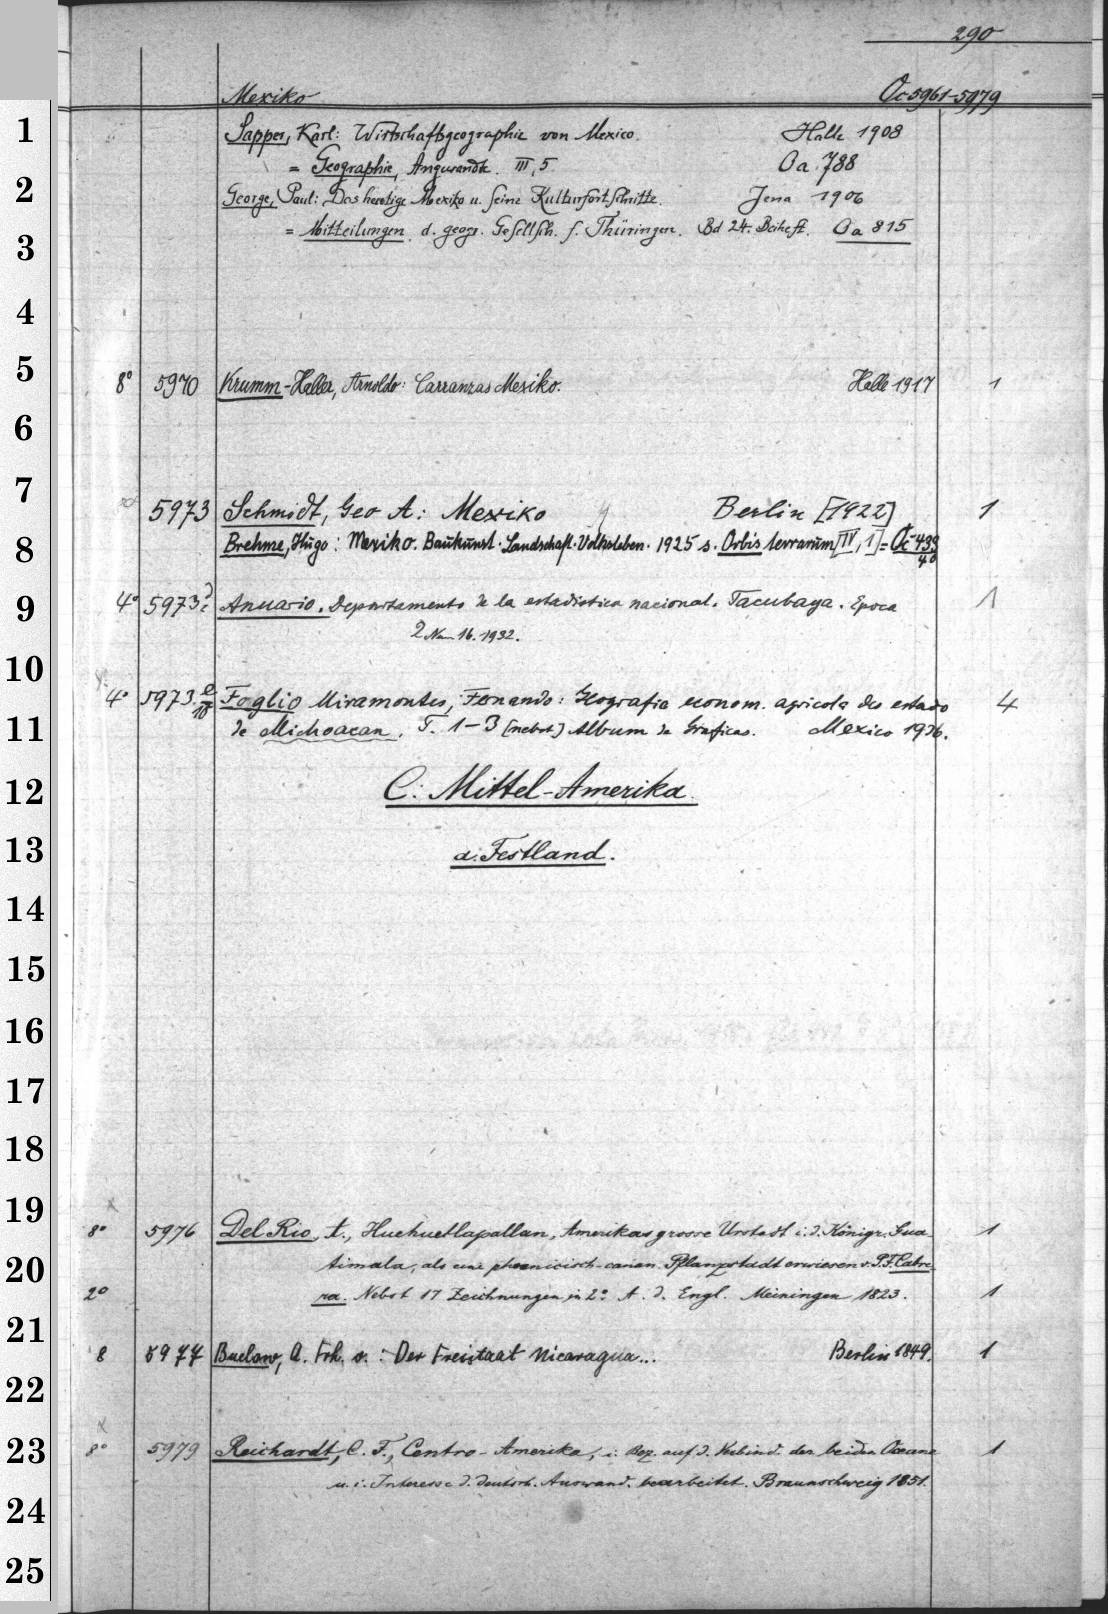 290
Mexiko Oc 5961-5979
Sapper, Karl: Wirtschaftsgeographie von Mexico. Halle 1908
= Geographie, Angewandte. III, 5. Oa 788
George, Paul: Das heutige Mexiko u. seine Kulturfortschritte. Jena 1906
= Mitteilungen d. geogr. Gesellsch. f. Thüringen. Bd 24. Beiheft. Oa 815
8° 5970 Krumm-Heller, Arnoldo: Carranzas Mexiko. Halle 1917 1
5973 Schmidt, Geo A.: Mexiko Berlin [1922] 1
Brehme, Hugo: Mexiko. Baukunst. Landschaft. Volksleben. 1925 s. Orbis terrarum [IV, 1] = Oc 439
4°
4° 5973 Anuario. Departamento de la estadistica nacional. Tacubaya. Epoca 1
2 Num 16. 1932.
4° 5973 e/10 Foglio Miramontes, Fernando: Geografia econom. agricola del estado 4
de Michoacan. T. 1-3 [nebst] Album de Graficas. Mexico 1936.
C: Mittel-Amerika
a: Festland.
8° 5976 Del Rio, A., Huehuetlapallan, Amerikas grosse Urstadt i. d. Königr. Gua- 1
timala, als eine phoenicisch-canan. Pflanzstadt erwiesen v. P. F. Cabre-
2° ra. Nebst 17 Zeichnungen in 2°. A. d. Engl. Meiningen 1823. 1
8 5977 Buelow, A. Frh. v.: Der Freistaat Nicaragua... Berlin 1849. 1
8° 5979 Reichardt, C. F., Centro-Amerika, i. Bez. auf d. Verbind. der beiden Oceane 1
u. i. Interesse d. deutsch. Auswand. bearbeitet. Braunschweig 1851.
1
2
3
4
5
6
7
8
9
10
11
12
13
14
15
16
17
18
19
20
21
22
23
24
25